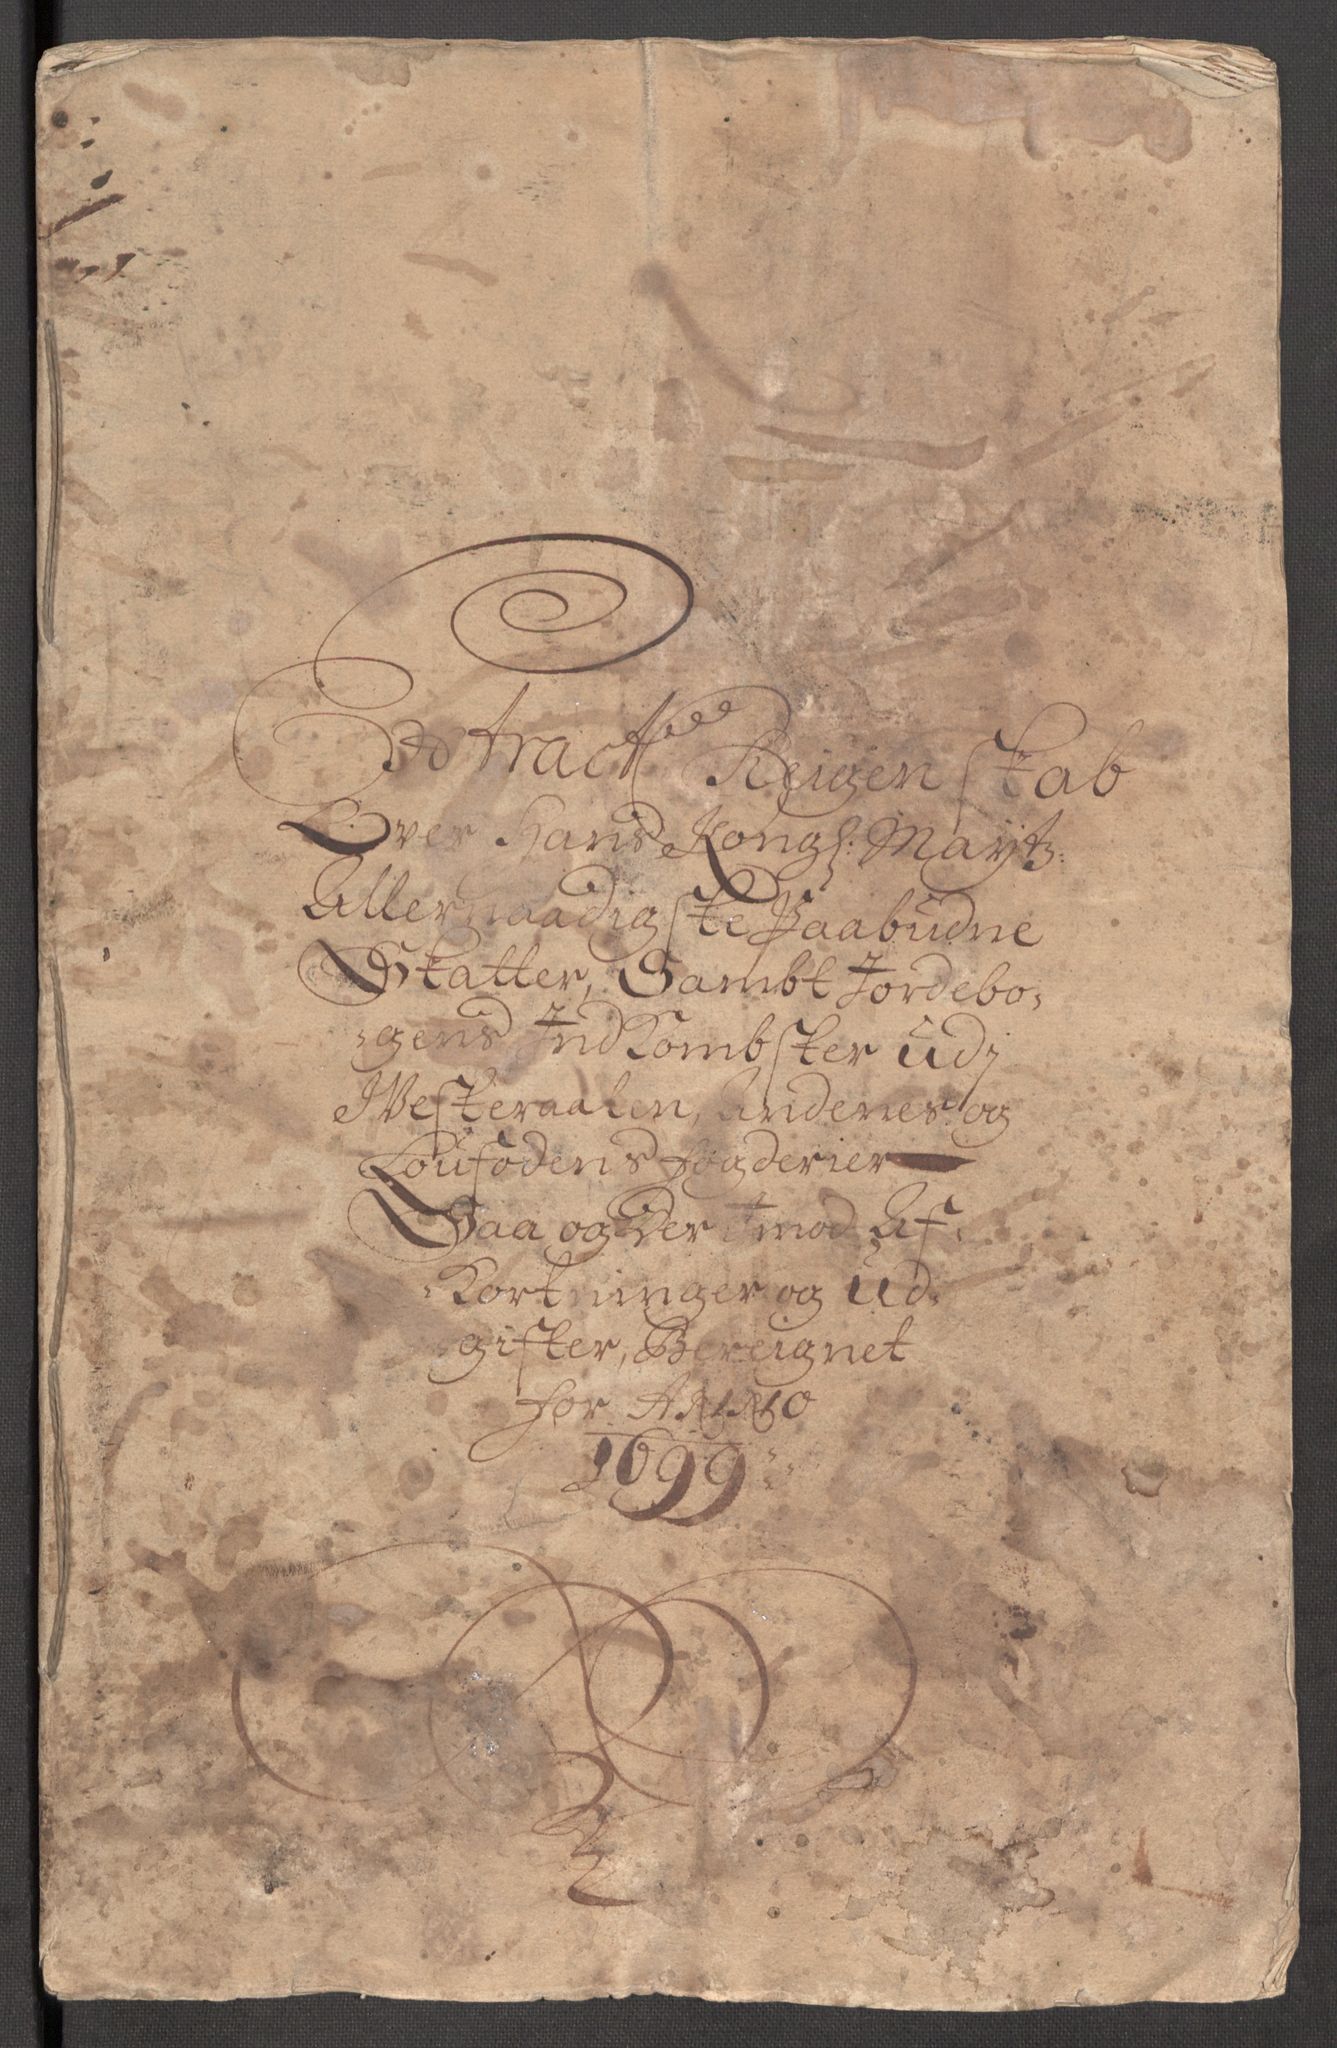 Extract Reigenskab
Over Hans Kongl: Maÿtz:
Allernaadigste Paabudne
Skatter, Sambt Jordebo,
,gens IndKombster Udj
Westeraalen, Andenes og
Loufodens fogderier
Saa og Der Imod Af,
,Kortninger og Ud,
gifter, Bereignet
for ANNO
1699